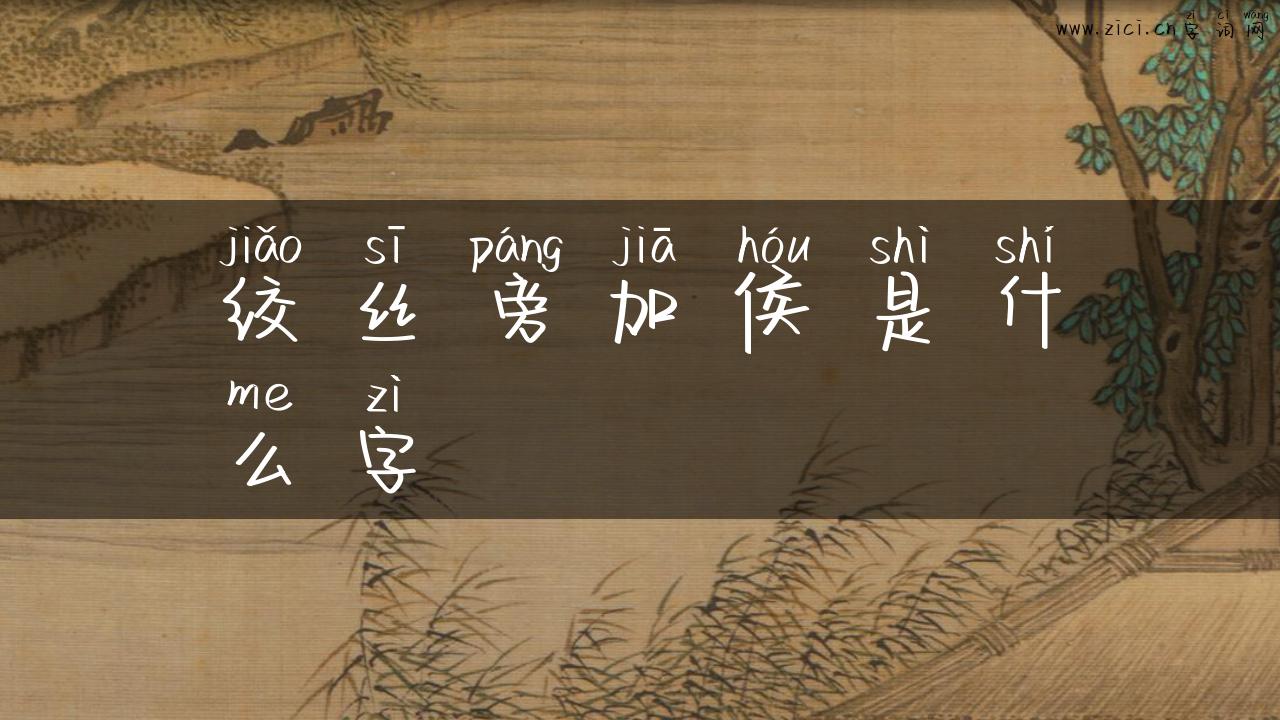 zì cí wǎng
www.zici.cn字词网
jiǎo sī páng jiā hóu shì shí
绞丝旁加侯是什
me zì
么字